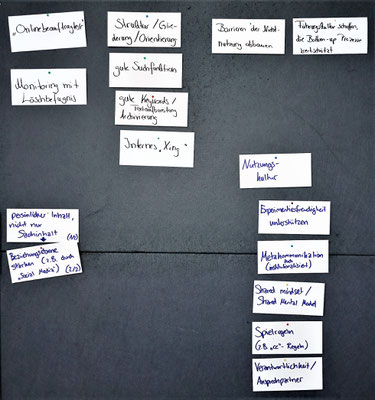 "Onlinebeauftragte"
Monitoring mit
Löschbefugnis
Struktur/Glie-
derung/Orientierung
gute Suchfunktion
gute Keywords/
Archivierung
Internes "Xing"
Barrieren der
Nutzung abbauen
Führungskräfte schaffen,
die Bottom-up Prozesse
wertschätzt
Nutzungs-
kultur
persönlicher Inhalt,
nicht nur
Sachinhalt
(1/2)
Beziehungsebene
stärken (z.B. durch
"Social Media") (2/2)
Experimentierfreudigkeit
unterstützen
Metakommunikation
(auch
institutionalisiert)
Shared mindset/
Shared Mental Model
Spielregeln
(z.B. "cc"-Regeln)
Verantwortlichkeit/
Ansprechpartner